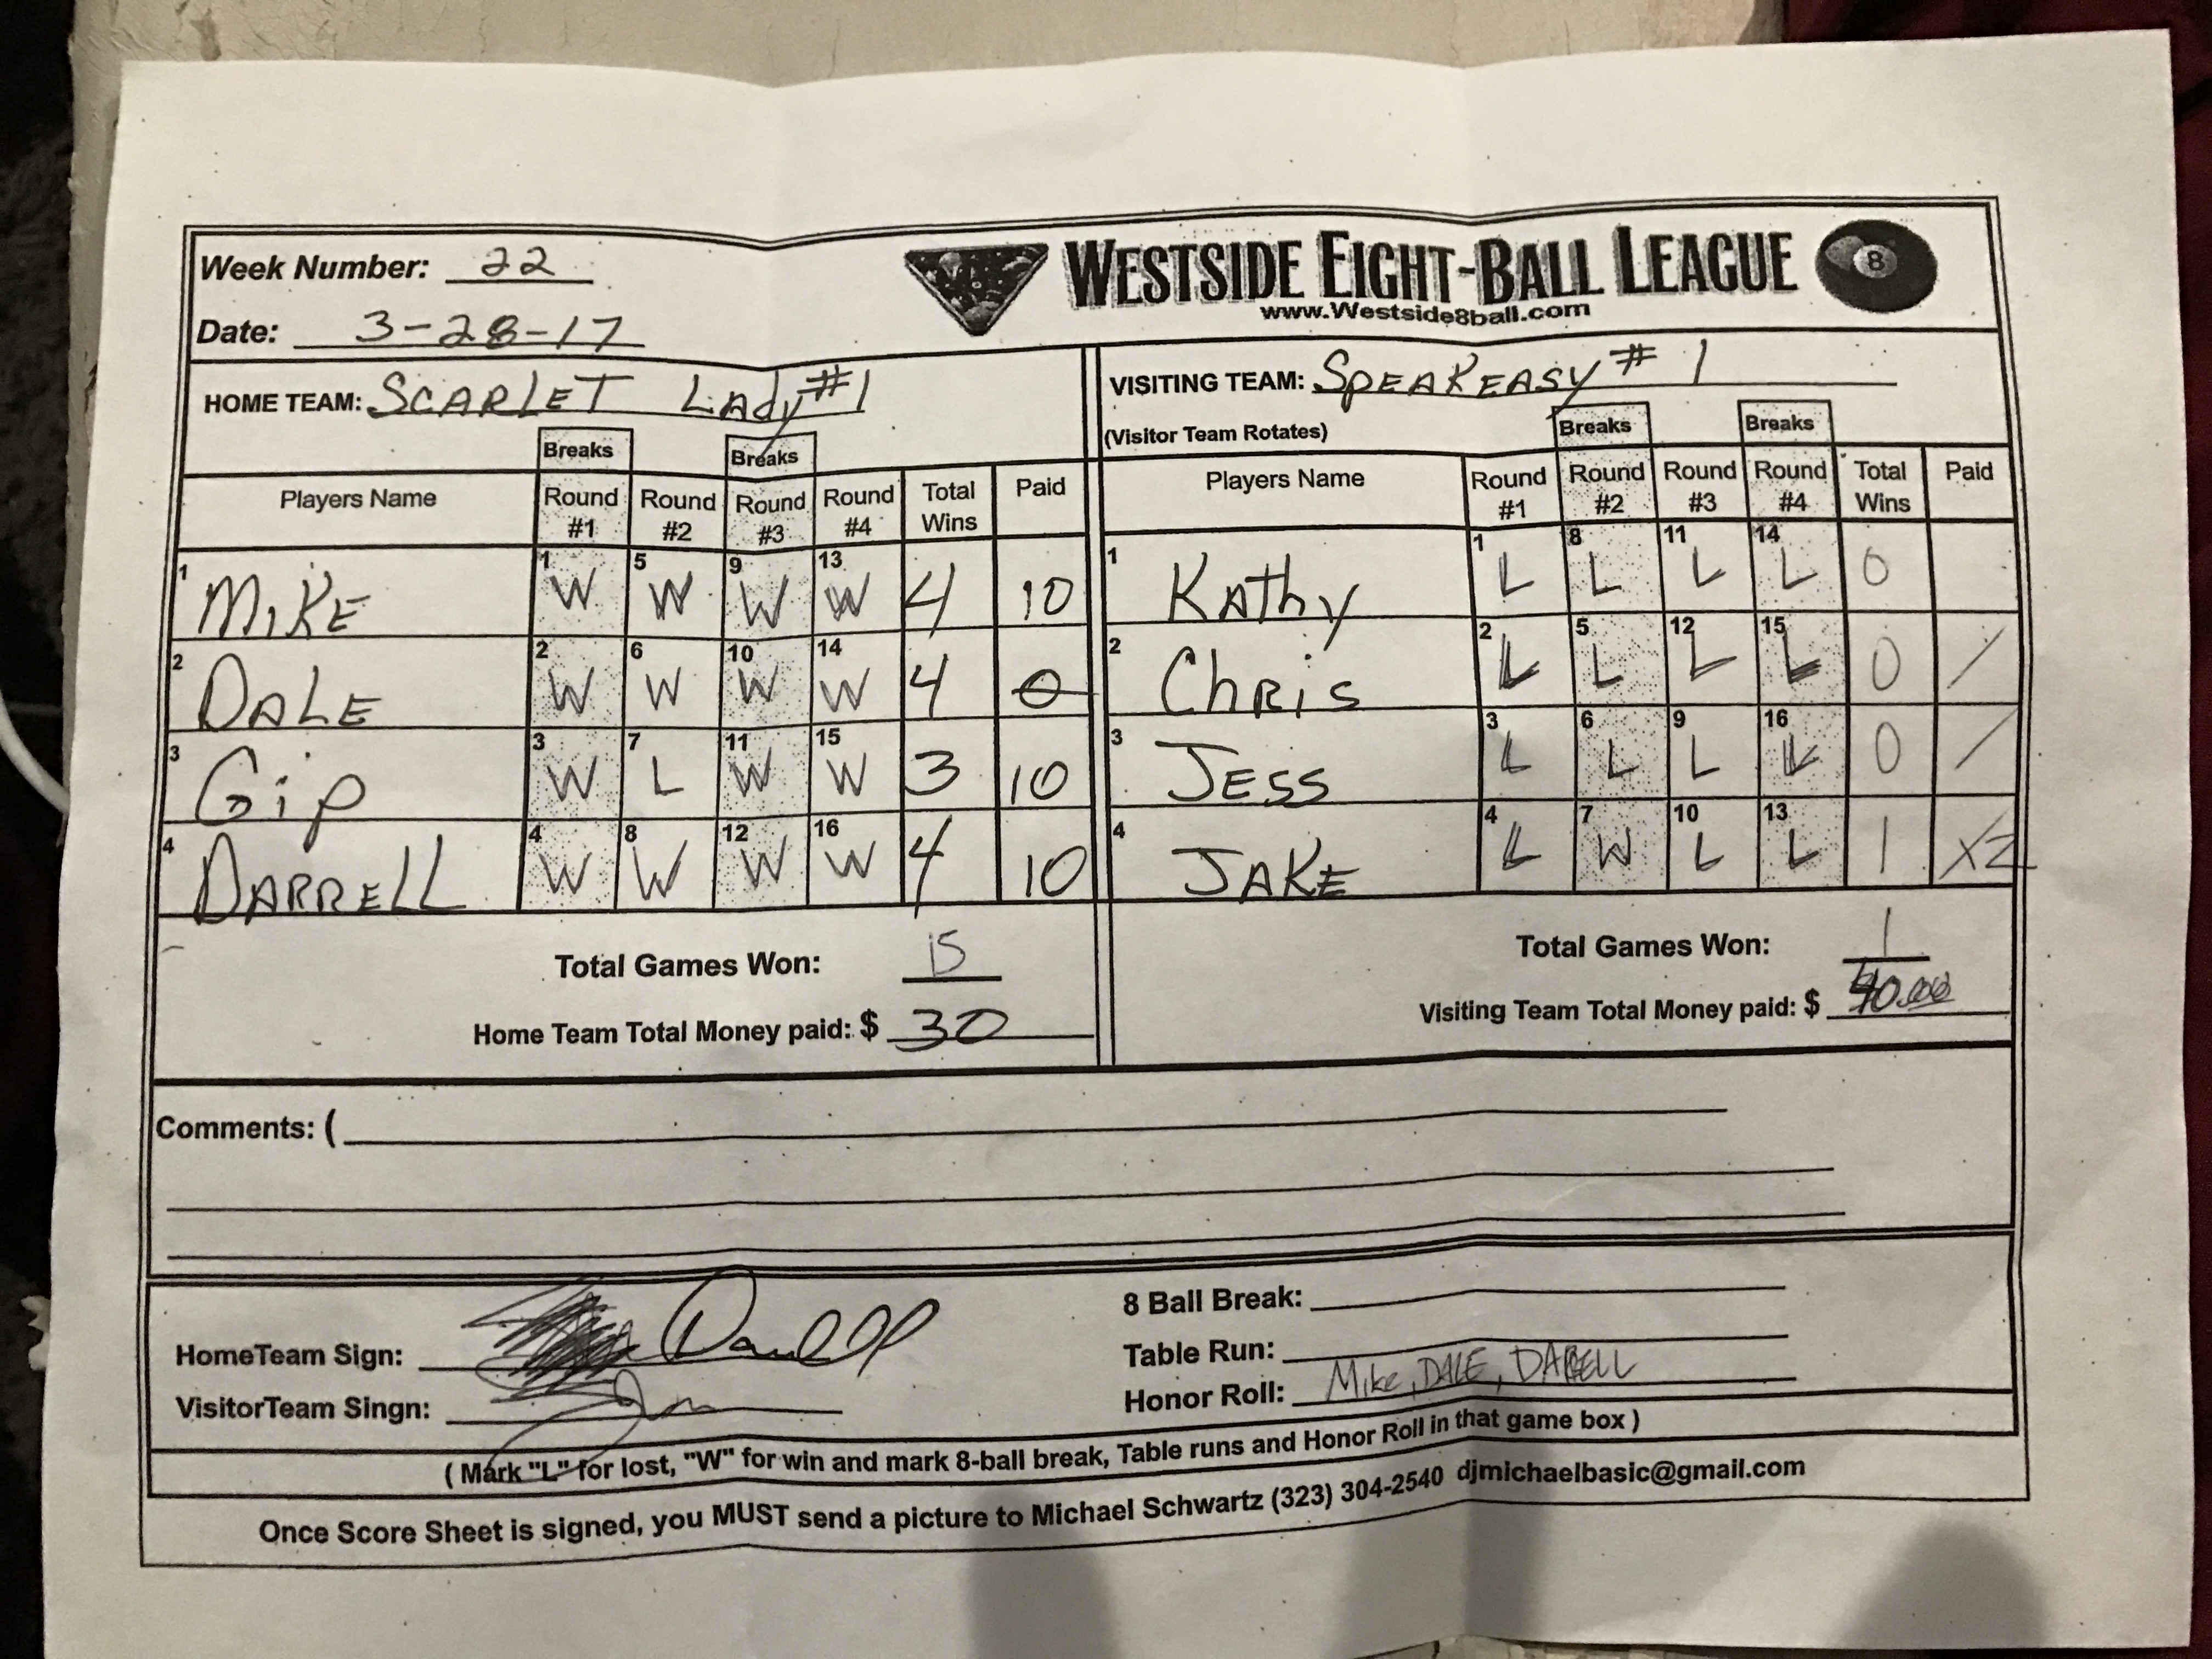 Week Number: 22
WESTSIDE EIGHT-BALL LEAGUE 8
www.Westside8ball.com
Date: 3-28-17
HOME TEAM: SCARLET LADY #1
VISITING TEAM: SPEAKEASY # 1
(Visitor Team Rotates)
Breaks Breaks
Breaks Breaks
Players Name Round #1 Round #2 Round #3 Round #4 Total Wins Paid
Players Name Round #1 Round #2 Round #3 Round #4 Total Wins Paid
1 MIKE 1 W 5 W 9 W 13 W 4 10
1 KAThy 1 L 8 L 11 L 14 L 0
2 DALE 2 W 6 W 10 W 14 W 4 0
2 ChRis 2 L 5 L 12 L 15 L 0 /
3 Gip 3 W 7 L 11 W 15 W 3 10
3 JESS 3 L 6 L 9 L 16 L 0 /
4 DARRELL 4 W 8 W 12 W 16 W 4 10
4 JAKE 4 L 7 W 10 L 13 L 1 X2
Total Games Won: 15
Total Games Won: 1
Home Team Total Money paid: $ 30
Visiting Team Total Money paid: $ 40.00
Comments: (
HomeTeam Sign: Darrell
VisitorTeam Singn:
8 Ball Break:
Table Run:
Honor Roll: Mike, DALE, DARELL
( Mark "L" for lost, "W" for win and mark 8-ball break, Table runs and Honor Roll in that game box )
Once Score Sheet is signed, you MUST send a picture to Michael Schwartz (323) 304-2540 djmichaelbasic@gmail.com